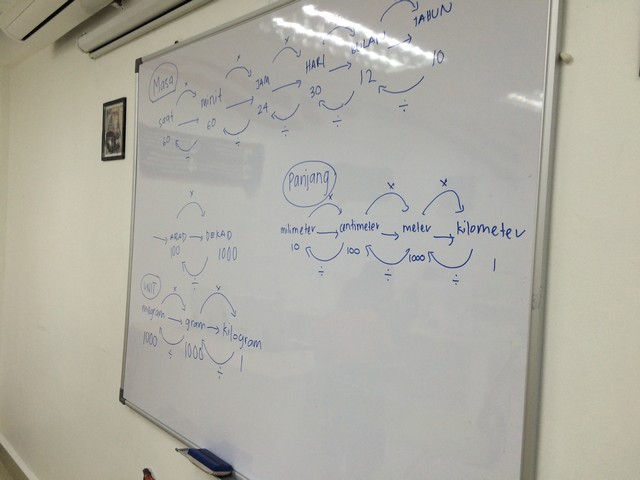 Masa
saat → minit → JAM → HARI → BULAN → TAHUN
60 60 24 30 12 10
x x x
÷ ÷ ÷ ÷ ÷
Panjang
x x x
milimeter → centimeter → meter → kilometer
10 100 1000 1
÷ ÷ ÷
x
→ ABAD → DEKAD
100 1000
÷
UNIT
x x
mgram → gram → kilogram
1000 1000 1
÷ ÷